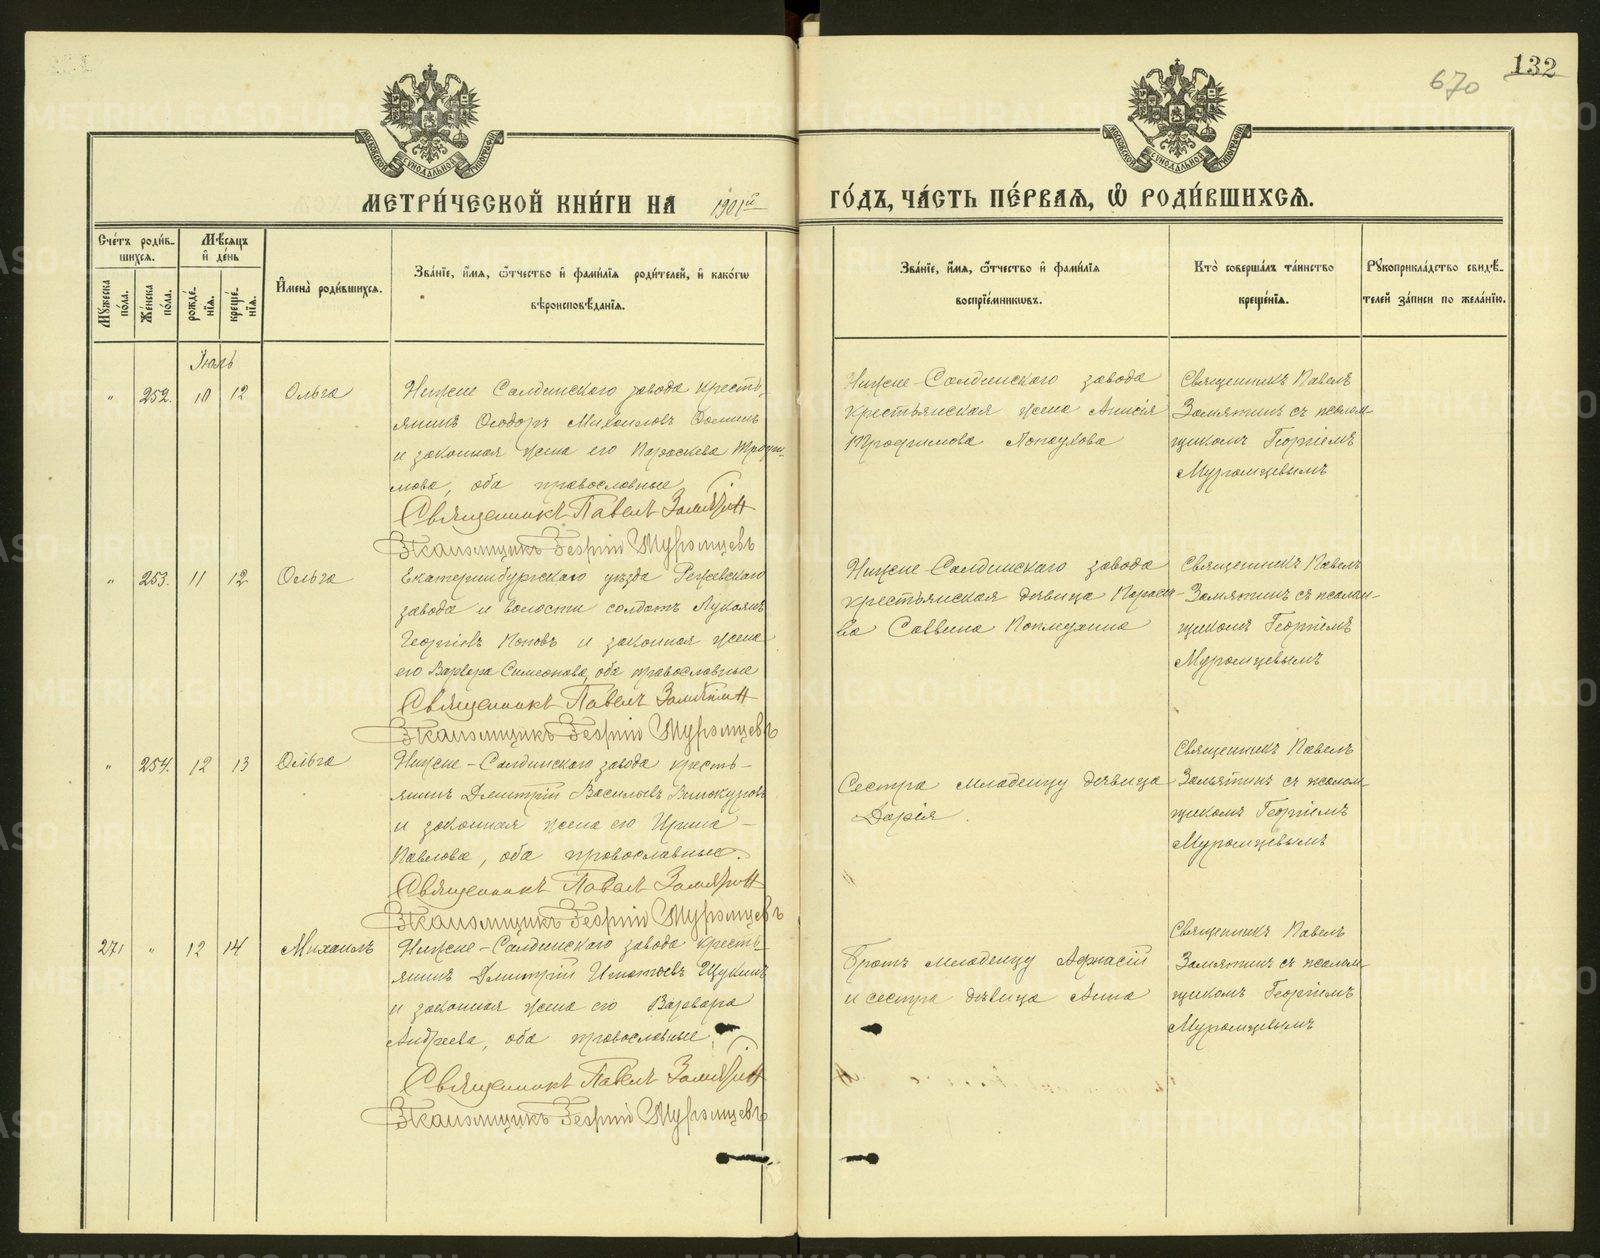 132
670
МЕТРИ́ЧЕСКОЙ КНИ́ГИ НА 1901й
ГО́ДЪ, ЧА́СТЬ ПЕ́РВАѦ, Ѽ РОДИ́ВШИХСѦ.
Сче́тъ роди́в-
шихся.
Мѣ́сяцъ
и де́нь
Мꙋ́жеска
по́ла.
Же́нска
по́ла.
рожде́-
нїя.
креще́-
нїя.
И҆мена̀ роди́вшихся.
Зва́нїе, и҆́мя, ѻ҆́тчество и҆ фами́лїя роди́телей, и҆ како́гѡ
вѣроисповѣ́данїя.
Зва́нїе, и҆́мя, ѻ҆́тчество и҆ фами́лїя
воспрїе́мникѡвъ.
Кто̀ соверша́лъ та́инство
креще́нїя.
Рꙋкоприкла́дство свидѣ́-
телей за́писи по жела́нїю.
Іюль
" 252. 10 12 Ольга
Нижне Салдинскаго завода кресть-
янинъ Ѳеодоръ Михаиловъ
и законная жена его Параскева Трофи-
мова, оба православные
Священникъ Павелъ Замятин
Псаломщикъ Георгій Муромцевъ
Нижне-Салдинскаго завода
крестьянская жена Анисія
Трофимова
Священникъ Павелъ
Замятинъ съ псалом-
щикомъ Георгіемъ
Муромцевымъ
" 253. 11 12. Ольга
Екатеринбургскаго уѣзда Режевскаго
завода и волости солдатъ Лукоянъ
Георгіевъ Поповъ и законная жена
его Варвара Симеонова, оба православные
Священникъ Павелъ Замятин
Псаломщикъ Георгій Муромцевъ
Нижне-Салдинскаго завода
крестьянская дѣвица Параске-
ва Саввина
Священникъ Павелъ
Замятинъ съ псалом-
щикомъ Георгіемъ
Муромцевымъ
" 254. 12 13 Ольга
Нижне-Салдинскаго завода кресть-
янинъ Дмитрій Васильевъ Винокуровъ
и законная жена его Ирина
Павлова, оба православные.
Священникъ Павелъ Замятин
Псаломщикъ Георгій Муромцевъ
Сестра младенцу дѣвица
Дарія.
Священникъ Павелъ
Замятинъ съ псалом-
щикомъ Георгіемъ
Муромцевымъ
271 " 12 14 Михаилъ
Нижне-Салдинскаго завода кресть-
янинъ Дмитрій Игнатьевъ Щукинъ
и законная жена его Варвара
Андреева, оба православные.
Священникъ Павелъ Замятин
Псаломщикъ Георгій Муромцевъ
Братъ младенцу Афанасій
и сестра дѣвица Анна
Священникъ Павелъ
Замятинъ съ псалом-
щикомъ Георгіемъ
Муромцевымъ
METRIKI.GASO-URAL.RU